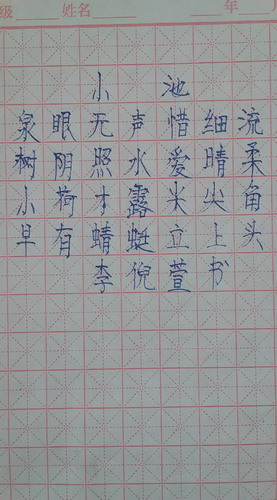 级 姓名 年
小池
泉眼无声惜细流
树阴照水爱晴柔
小荷才露尖尖角
早有蜻蜓立上头
李倪萱书